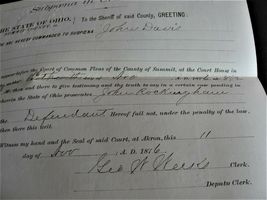 Subpœna in
THE STATE OF OHIO, } To the Sheriff of said County, GREETING:
ARE HEREBY COMMANDED TO SUBPŒNA John Davis
appear before the Court of Common Pleas of the County of Summit, at the Court House in
A. D. 18
M., then and there to give testimony and the truth to say in a certain case pending in
wherein the State of Ohio prosecutes John Rockingham
the Defendant Hereof fail not, under the penalty of the law
then there this writ.
Witness my hand and the Seal of said Court, at Akron, this 11
day of Nov A. D. 1876
Geo W Weeks Clerk.
Deputy Clerk